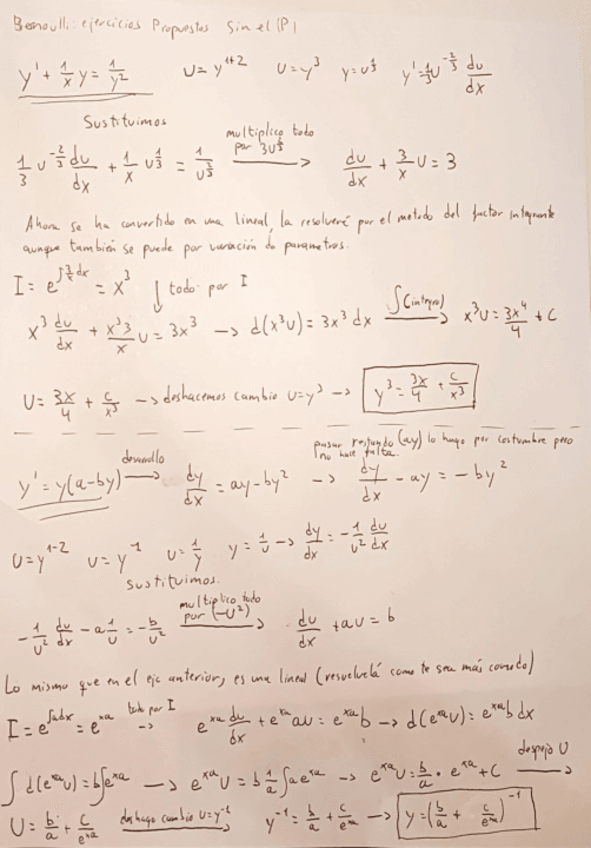 Bernoulli: ejercicios Propuestos Sin el (P)
y' + 1/x y = 1/y² U = y¹⁺² U = y³ y = U^(1/3) y' = 1/3 U^(-2/3) du/dx
Sustituimos
1/3 U^(-2/3) du/dx + 1/x U^(1/3) = 1/U^(2/3) multiplico todo por 3U^(2/3) → du/dx + 3/x U = 3
Ahora se ha convertido en una lineal, la resolveré por el metodo del factor integrante
aunque también se puede por variación de parametros.
I = e^(∫3/x dx) = x³ ↓ todo por I
x³ du/dx + x³3/x U = 3x³ → d(x³U) = 3x³ dx ∫(integro) → x³U = 3x⁴/4 + C
U = 3x/4 + C/x³ → deshacemos cambio U = y³ → y³ = 3x/4 + C/x³
pasar restando (ay) lo hago por costumbre pero
no hace falta.
y' = y(a-by) desarrollo → dy/dx = ay - by² → dy/dx - ay = -by²
U = y¹⁻² U = y⁻¹ U = 1/y y = 1/U → dy/dx = -1/U² du/dx
sustituimos.
-1/U² du/dx - a 1/U = -b/U² multiplico todo por (-U²) → du/dx + aU = b
Lo mismo que en el eje anterior, es una lineal (resuelvelá como te sea más comodo)
I = e^(∫adx) = e^(xa) todo por I → e^(xa) du/dx + e^(xa) aU = e^(xa) b → d(e^(xa)U) = e^(xa) b dx
∫d(e^(xa)U) = b∫e^(xa) → e^(xa)U = b 1/a ∫ae^(xa) → e^(xa)U = b/a · e^(xa) + C despejo U →
U = b/a + C/e^(xa) deshago cambio U = y⁻¹ → y⁻¹ = b/a + C/e^(xa) → y = (b/a + C/e^(xa))⁻¹